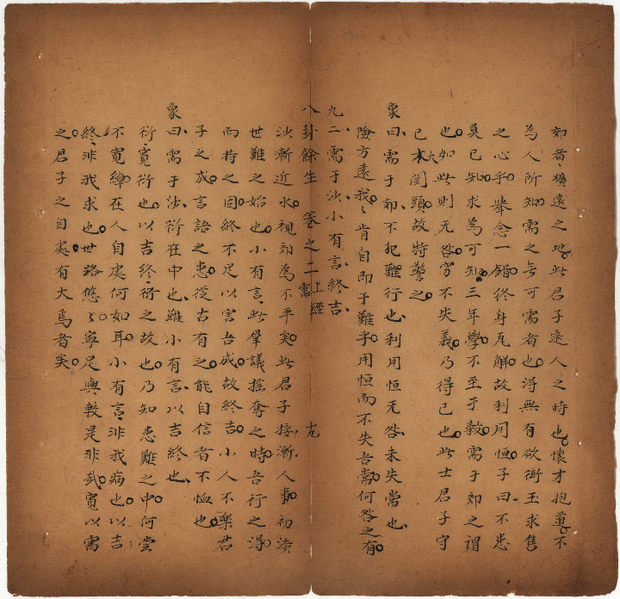 郊者曠遠之地此君子遠人之時也懷才抱道不
為人所知需之無可需者也得無有欲衒玉求售
之心乎舉念一錯終身瓦解故利用恒子曰不患
莫己知求為可知三年學不至于穀需于郊之謂
也如此則无咎穷不失義乃得己也此士君子守
己大本関頭故特警之
象曰需于郊不犯難行也利用恒无咎未失常也
險方遠我〻肯自即于難乎用恒而不失吾常何咎之有
九二需于沙小有言終吉
八卦餘生 卷之二 上經 需 十九
沙漸近水視郊為不平矣此君子接漸人事初涉
世難之始也小有言此羣議摇奪之時吾行之得
而持之固終不足以害吾成故終吉小人不樂君
子之成言語之患從古有之能自信者不恤也
象曰需于沙衍在中也雖小有言以吉終也
衍寬衍也以吉終衍之故也乃知患難之中何嘗
不寬綽在人自處何如耳小有言非我病也以吉
終非我求也世路悠〻寧足與較是非哉寬以需
之君子之自處有大焉者矣